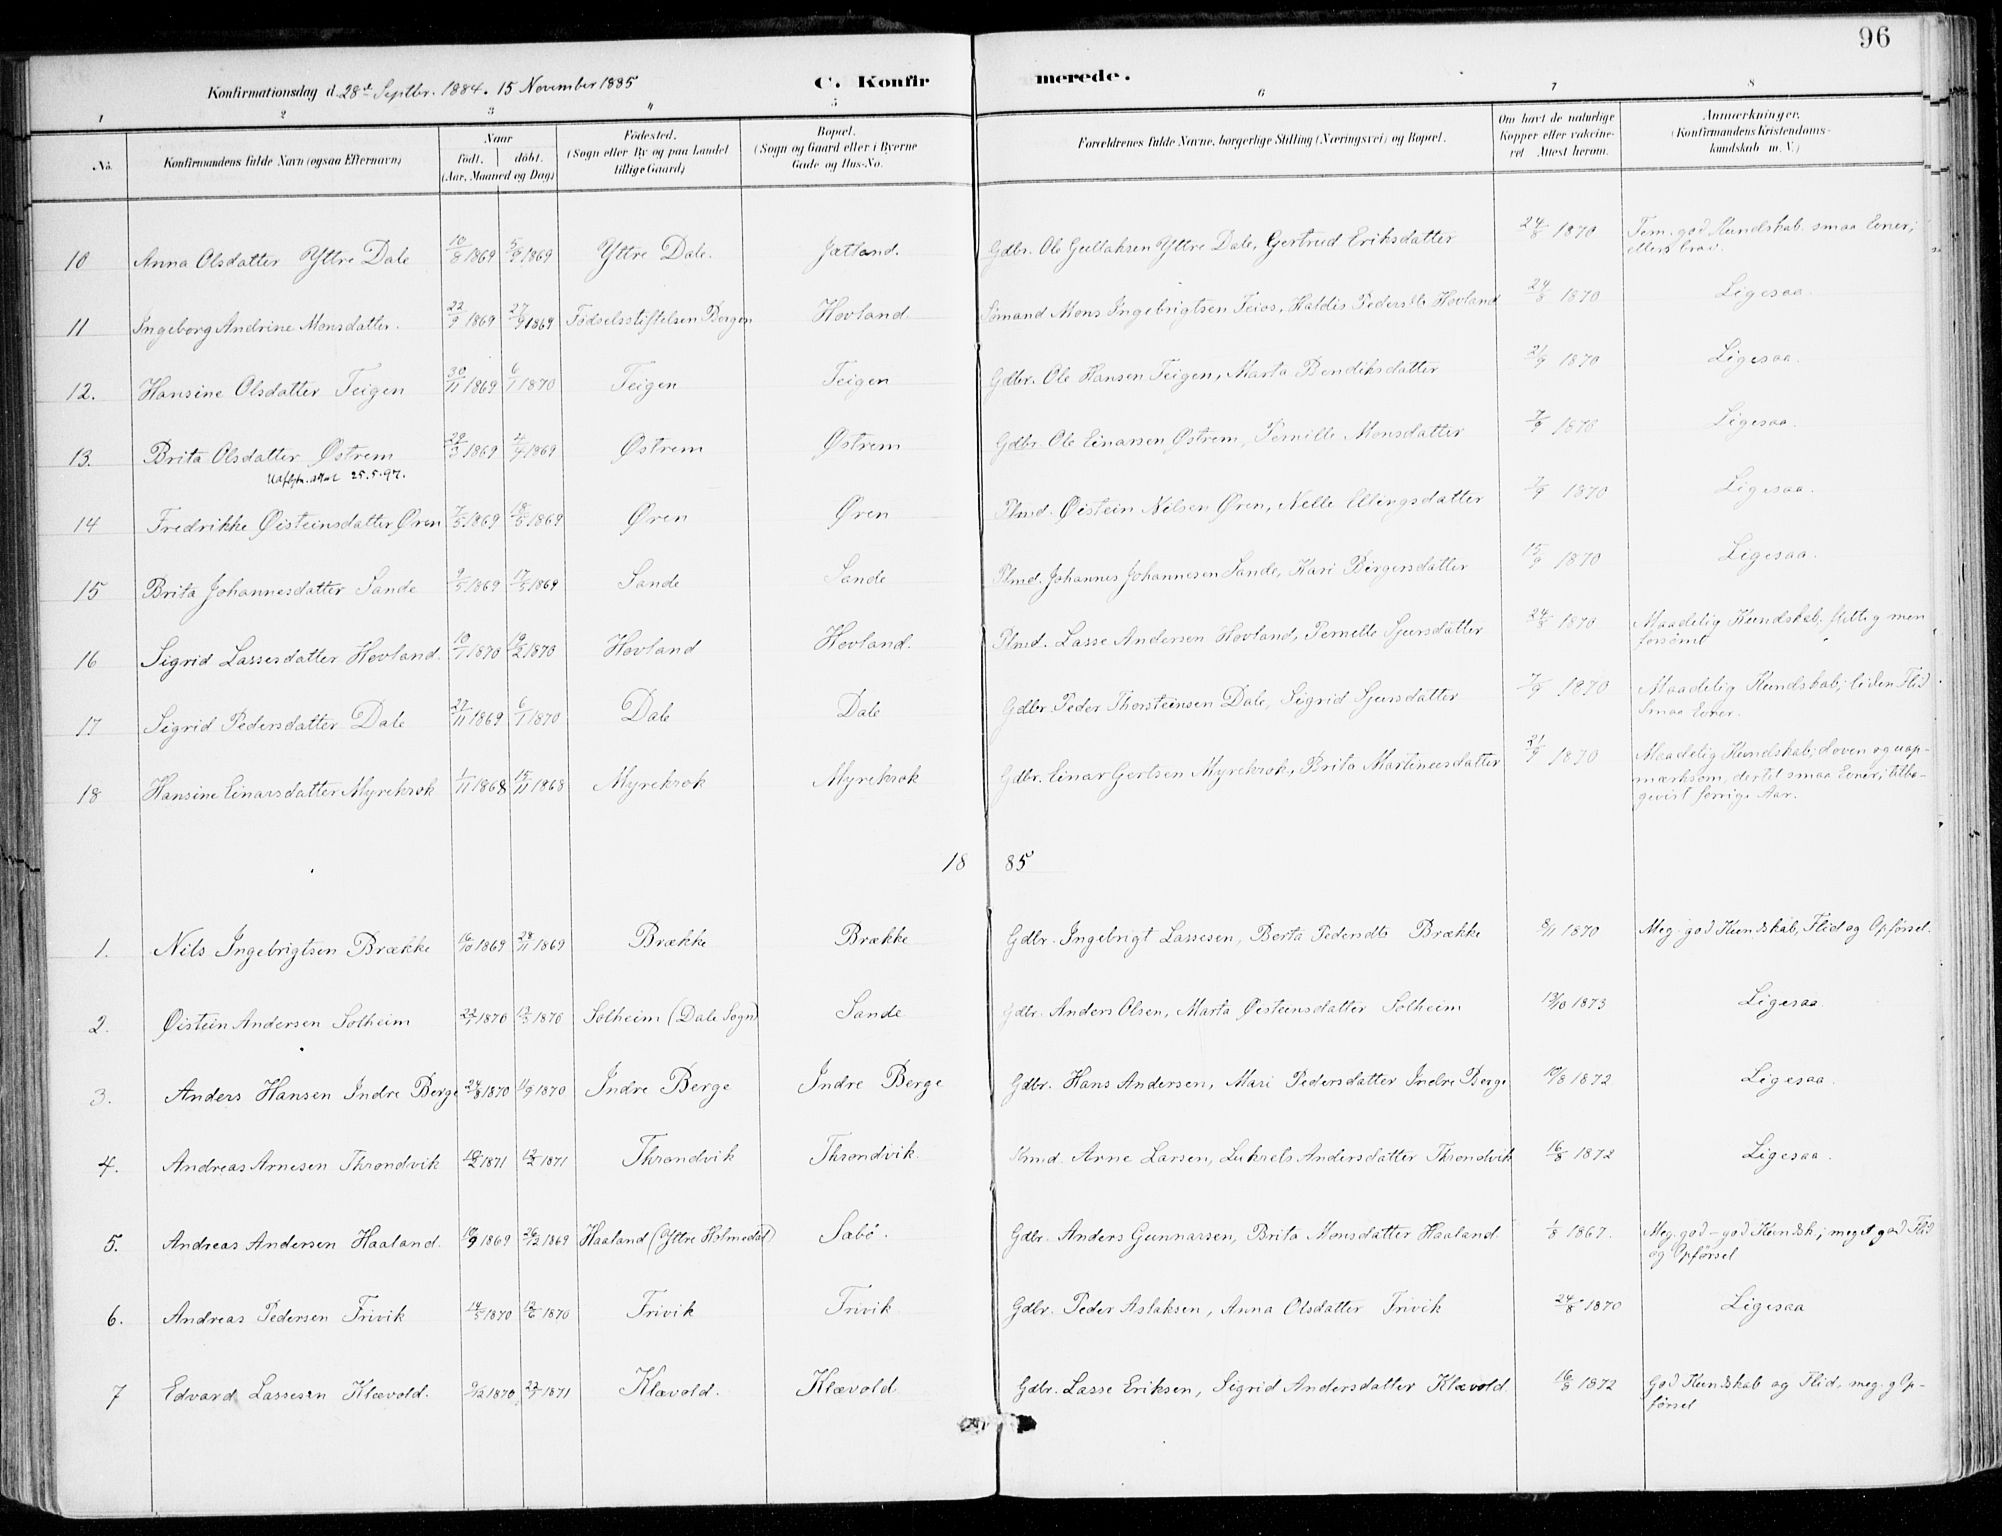 96
Konfirmationsdag d. 28de Septbr. 1884. 15 November 1885
C. Konfirmerede.
1 2 3 4 5 6 7 8
No. Konfirmandens fulde Navn (ogsaa Efternavn) Naar født. døbt. (Aar, Maaned og Dag) Fødested. (Sogn eller By og paa Landet tillige Gaard) Bopæl. (Sogn og Gaard eller i Byerne Gade og Hus-No. Forældrenes fulde Navne, borgerlige Stilling (Næringsvei) og Bopæl. Om havt de naturlige Kopper eller vakcineret Attest herom. Anmærkninger. (Konfirmandens Kristendomskundskab m. V.)
10 Anna Olsdatter Yttre Dale 10/8 1869 5/9 1869 Yttre Dale. Jatland. Gdbr. Ole Gullaksen Yttre Dale, Gertrud Eriksdatter 24/8 1870 Tem. god Kundskab. smaa Evner; ellers brav.
11 Ingeborg Andrine Monsdatter. 22/9 1869 27/9 1869 Fødselsstiftelsen Bergen Hovland Sømand Mons Ingebrigtsen Feios, Haldis Pedersdtr Hovland 24/8 1870 Ligesaa.
12. Hansine Olsdatter Teigen 30/11 1869 6/1 1870 Teigen Teigen Gdbr. Ole Hansen Teigen, Marta Bendiksdatter 21/9 1870 Ligesaa.
13. Brita Olsdatter Østrem 29/3 1869 4/4 1869 Østrem Østrem Gdbr. Ole Einarsen Østrem, Pernille Monsdatter 7/9 1870 Ligesaa.
25.5.97.
14 Fredrikke Øisteinsdatter Øren 7/5 1869 18/5 1869 Øren Øren Plmd. Øistein Nilsen Øren, Nelle Ellingsdatter 7/9 1870 Ligesaa.
15 Brita Johannesdatter Sande 9/5 1869 17/5 1869 Sande Sande Plmd. Johannes Johannesen Sande, Kari Birgersdatter 15/9 1870 Ligesaa.
16 Sigrid Lassesdatter Hovland. 10/1 1870 19/2 1870 Hovland Hovland. Plmd. Lasse Andersen Hovland, Pernelle Sjursdatter 24/8 1870 Maadelig Kundskab, flittig men forsømt
17 Sigrid Pedersdatter Dale 27/11 1869 6/1 1870 Dale Dale Gdbr. Peder Thorsteinsen Dale, Sigrid Sjursdatter 7/9 1870 Maadelig Kundskab; liden Flid Smaa Evner.
18 Hansine Einarsdatter Myrekrok 1/11 1868 15/11 1868 Myrekrok Myrekrok Gdbr. Einar Gertsen Myrekrok, Brita Martineesdatter 21/9 1870 Maadelig Kundskab; doven og uopmærksom, dertil smaa Evner; tilbagevist forrige Aar.
1885
1. Nils Ingebrigtsen Brække 16/10 1869 28/11 1869 Brække Brække Gdbr. Ingebrigt Lassesen, Berta Pedersdtr Brække 8/11 1870 Meg. god Kundskab, Flid og Opførsel.
2. Øistein Andersen Solheim 22/1 1870 13/3 1870 Solheim (Dale Sogn) Sande Gdbr. Anders Olsen, Marta Øisteinsdatter Solheim 13/10 1873 Ligesaa
3. Anders Hansen Indre Berge 24/8 1870 11/9 1870 Indre Berge Indre Berge Gdbr. Hans Andersen, Mari Pedersdatter Indre Berge 10/8 1872 Ligesaa.
4. Andreas Arnesen Throndvik 10/2 1871 12/2 1871 Throndvik Throndvik Kmd. Arne Larsen, Lukrets Andersdatter Throndvik 16/8 1872 Ligesaa.
5. Andreas Andersen Haaland. 10/9 1869 26/12 1869 Haaland (Yttre Holmedal) Sæbø. Gdbr. Anders Gunnarsen, Brita Monsdatter Haaland. 1/8 1867. Meg. god - god Kundsk; meget god Flid og Opførsel
6. Andreas Pedersen Trivik 14/5 1870 12/6 1870 Trivik Trivik Gdbr. Peder Aslaksen, Anna Olsdatter Trivik 24/8 1870 Ligesaa
7 Edvard Lassesen Klævold. 9/12 1870 22/1 1871 Klævold. Klævold Gdbr. Lasse Eriksen, Sigrid Andersdatter Klævold. 16/8 1872 God Kundskab og Flid, meg. g Opførsel